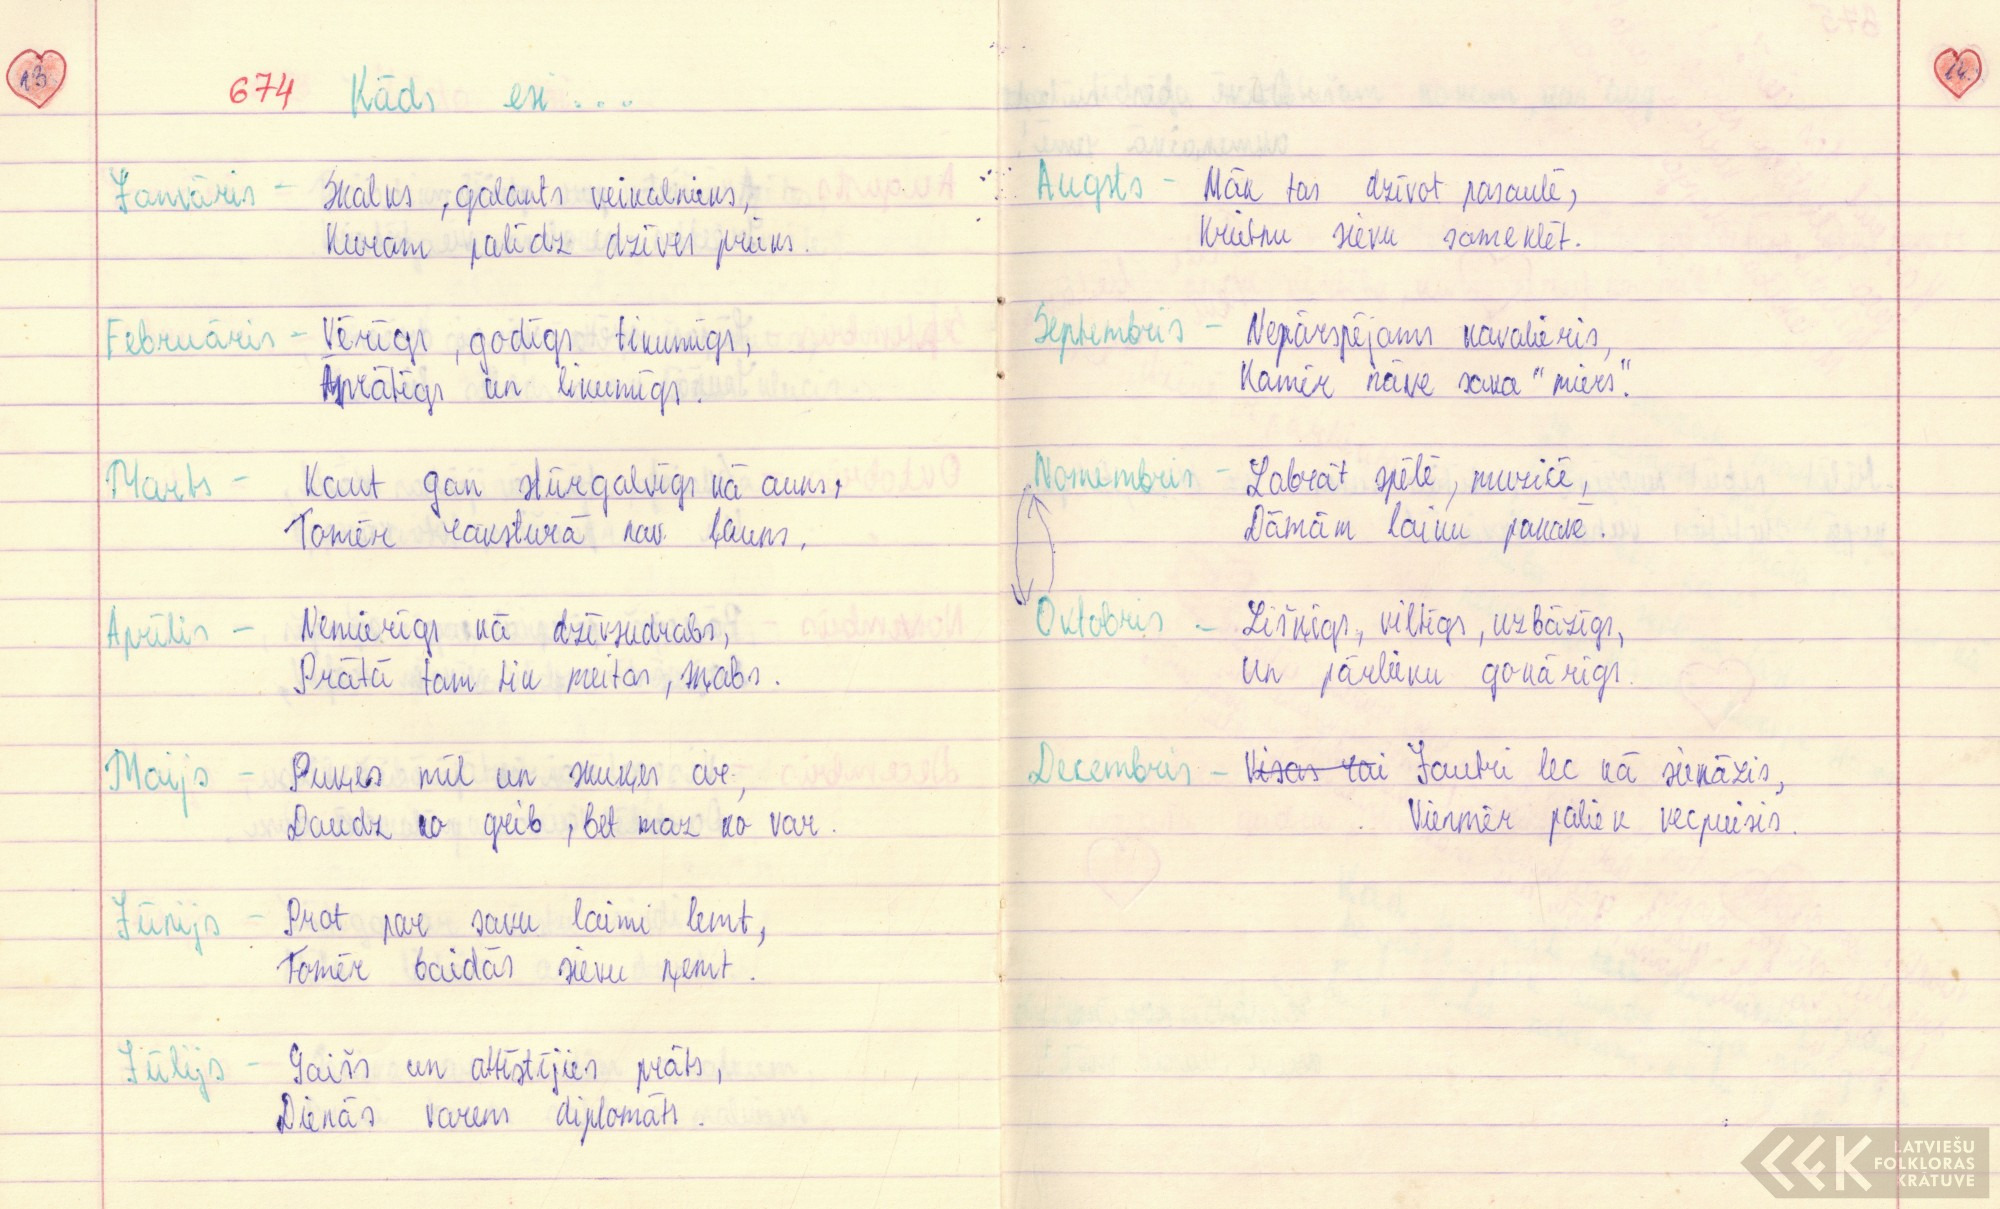 13.
674 Kāds esi...
Janvāris - Skalks, galants veikalnieks,
Kuram palīdz dzīves prieks.
Februāris - Vērīgs, godīgs, tikumīgs,
Aprātīgs un likumīgs.
Marts - Kaut gan stūrgalvīgs kā auns,
Tomēr raksturā nav ļauns.
Aprīlis - Nemierīgs kā dzīvsudrabs,
Prātā tam tik meitas, šņabs.
Maijs - Puķes mīl un skuķes ar,
Daudz ko grib, bet maz ko var.
Jūnijs - Prot par savu laimi lemt,
Tomēr baidās sievu ņemt.
Jūlijs - Gaišs un attīstījies prāts,
Dienās varens diplomāts.
14.
Augsts - Māk tas dzīvot pasaulē,
Krietnu sievu sameklēt.
Septembris - Nepārspējams kavalieris,
Kamēr nāve saka "miers".
Novembris - Labrāt spēlē, muzicē,
Dāmām laiku pakavē.
Oktobris - Lišķīgs, viltīgs, uzbāzīgs,
Un pārlieku gokārīgs.
Decembris - Visas rai Jautri lec kā sienāzis,
Vienmēr paliek vecpuisis.
LATVIEŠU
FOLKLORAS
KRĀTUVE